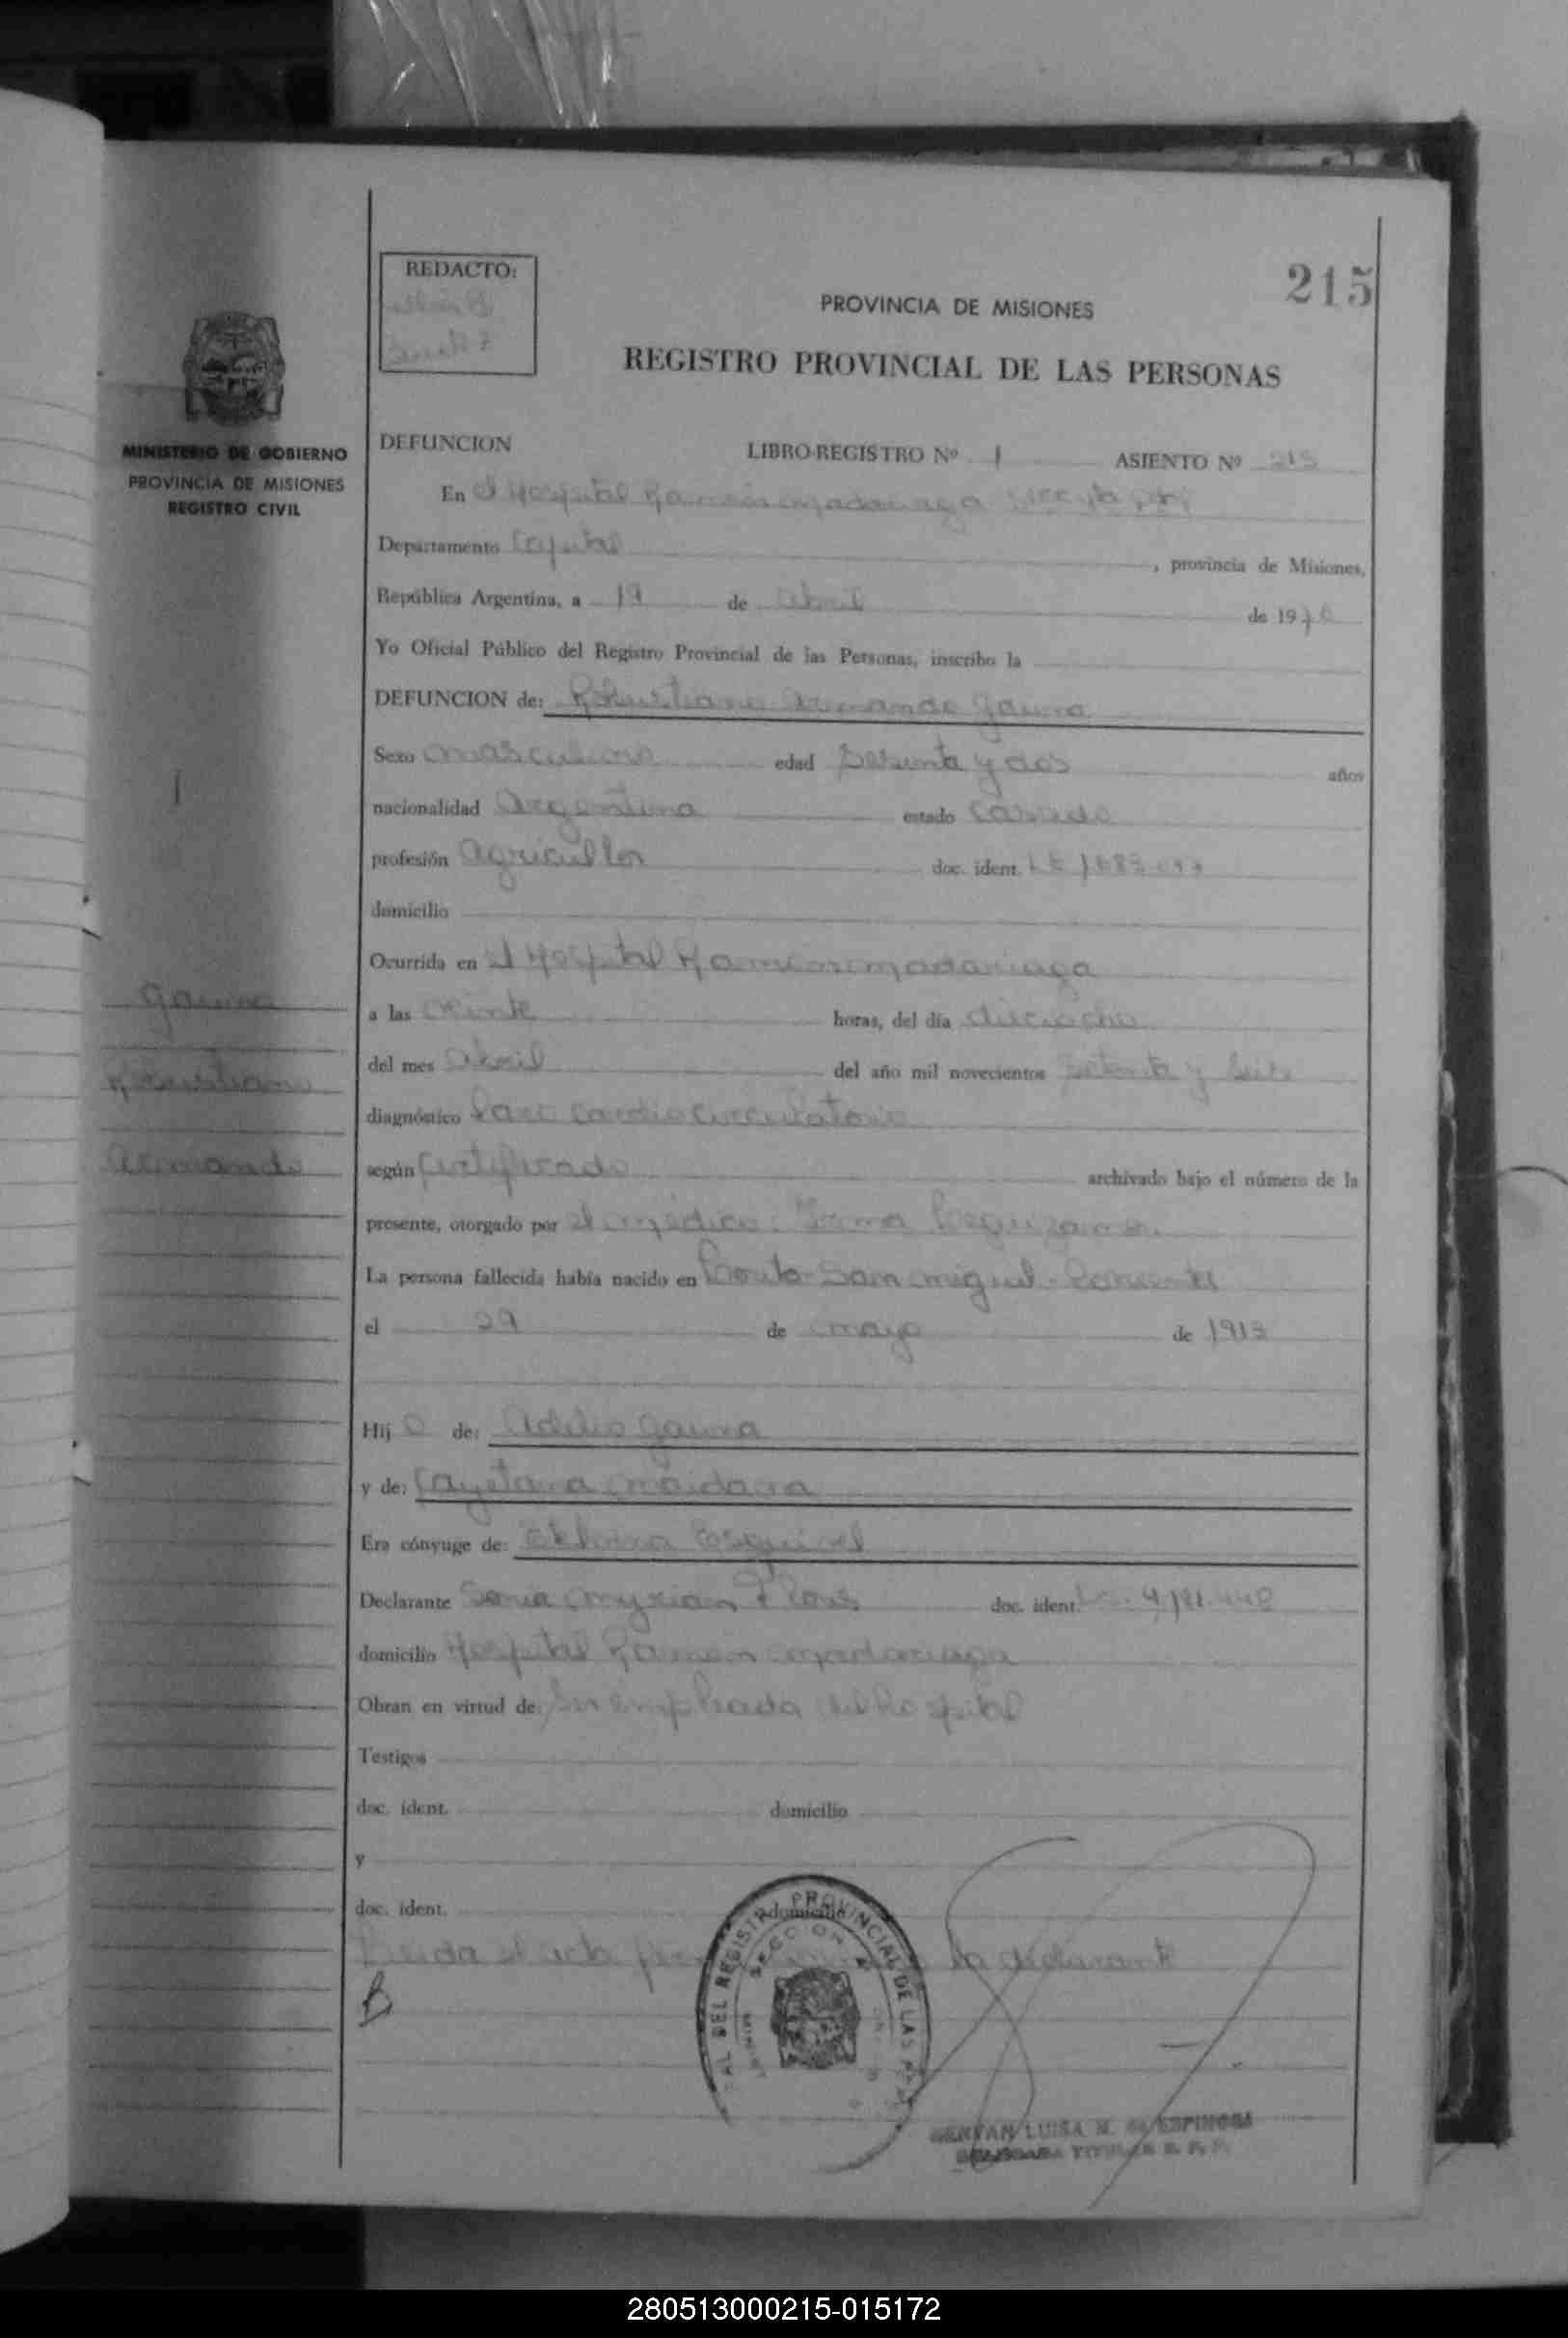 REDACTO:
215
PROVINCIA DE MISIONES
REGISTRO PROVINCIAL DE LAS PERSONAS
MINISTERIO DE GOBIERNO
PROVINCIA DE MISIONES
REGISTRO CIVIL
DEFUNCION LIBRO-REGISTRO Nº 1 ASIENTO Nº 215
En el Hospital Ramón Madariaga
Departamento Capital, provincia de Misiones,
República Argentina, a 19 de abril de 1976
Yo Oficial Público del Registro Provincial de las Personas, inscribo la
DEFUNCION de: Robustiano Armando Gauna
Sexo masculino edad sesenta y dos años
nacionalidad Argentina estado casado
profesión agricultor doc. ident. LE
domicilio
Ocurrida en el Hospital Ramón Madariaga
a las horas, del día dieciocho
del mes abril del año mil novecientos setenta y seis
diagnóstico Paro cardio circulatorio
según certificado archivado bajo el número de la
presente, otorgado por el médico: Irma Leguizamón
La persona fallecida había nacido en San Miguel - Corrientes
el 29 de mayo de 1913
Gauna
Robustiano
Armando
Hijo de: Adelio Gauna
y de: Cayetana Maidana
Era cónyuge de: Etelvina Esquivel
Declarante Sonia Myrian Flores doc. ident.
domicilio Hospital Ramón Madariaga
Obran en virtud de: Ser empleada del hospital
Testigos
doc. ident. domicilio
y
doc. ident. domicilio
Leida el acta la declarante
DEL REGISTRO PROVINCIAL DE LAS
SECCION
LUISA M. de ESPINOSA
TITULAR R. P. P.
280513000215-015172